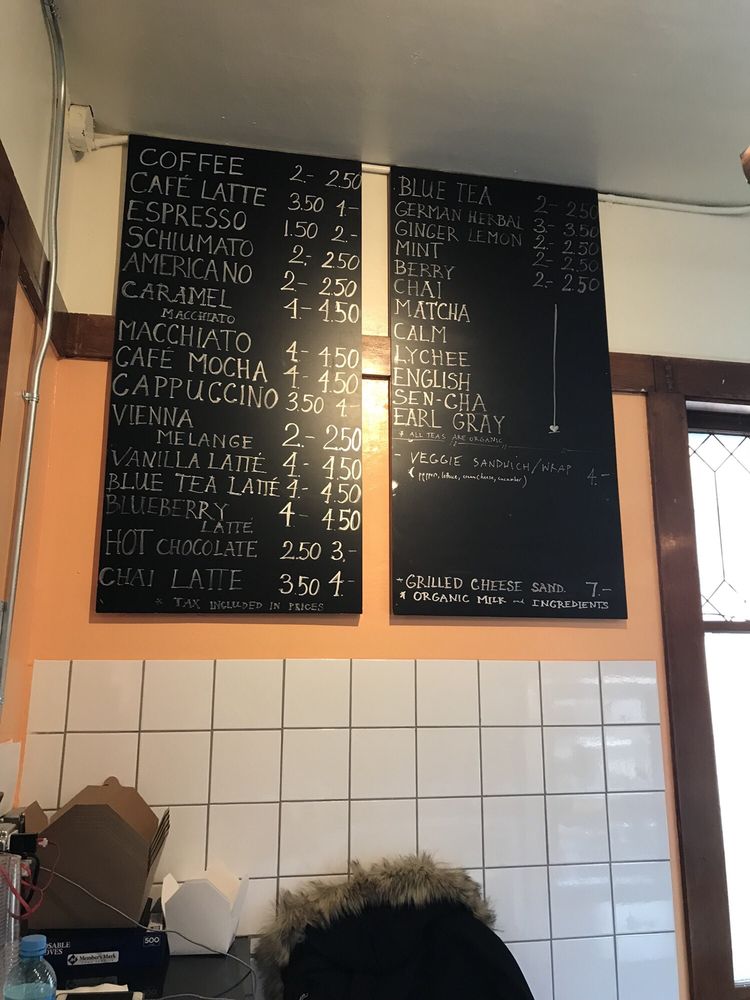 COFFEE 2.- 2.50
CAFÉ LATTE 3.50 4.-
ESPRESSO 1.50 2.-
SCHIUMATO 2.- 2.50
AMERICANO 2.- 2.50
CARAMEL 4.- 4.50
MACCHIATO
MACCHIATO 4.- 4.50
CAFÉ MOCHA 4.- 4.50
CAPPUCCINO 3.50 4.-
VIENNA
MELANGE 2.- 2.50
VANILLA LATTÉ 4.- 4.50
BLUE TEA LATTÉ 4.- 4.50
BLUEBERRY 4.- 4.50
LATTÉ
HOT CHOCOLATE 2.50 3.-
CHAI LATTE 3.50 4.-
* TAX INCLUDED IN PRICES
BLUE TEA 2.- 2.50
GERMAN HERBAL 3.- 3.50
GINGER LEMON 2.- 2.50
MINT 2.- 2.50
BERRY 2.- 2.50
CHAI
MATCHA
CALM
LYCHEE
ENGLISH
SEN-CHA
EARL GRAY
* ALL TEAS ARE ORGANIC
- VEGGIE SANDWICH/WRAP 4.-
(peppers, lettuce, cream cheese, cucumber)
- GRILLED CHEESE SAND. 7.-
* ORGANIC MILK and INGREDIENTS
Member's Mark
500